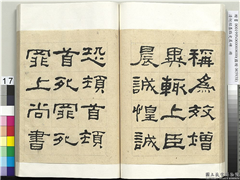 稱為效增
異輒上臣
晨誠惶誠
恐頓首頓
首死罪死
罪上尚書
17